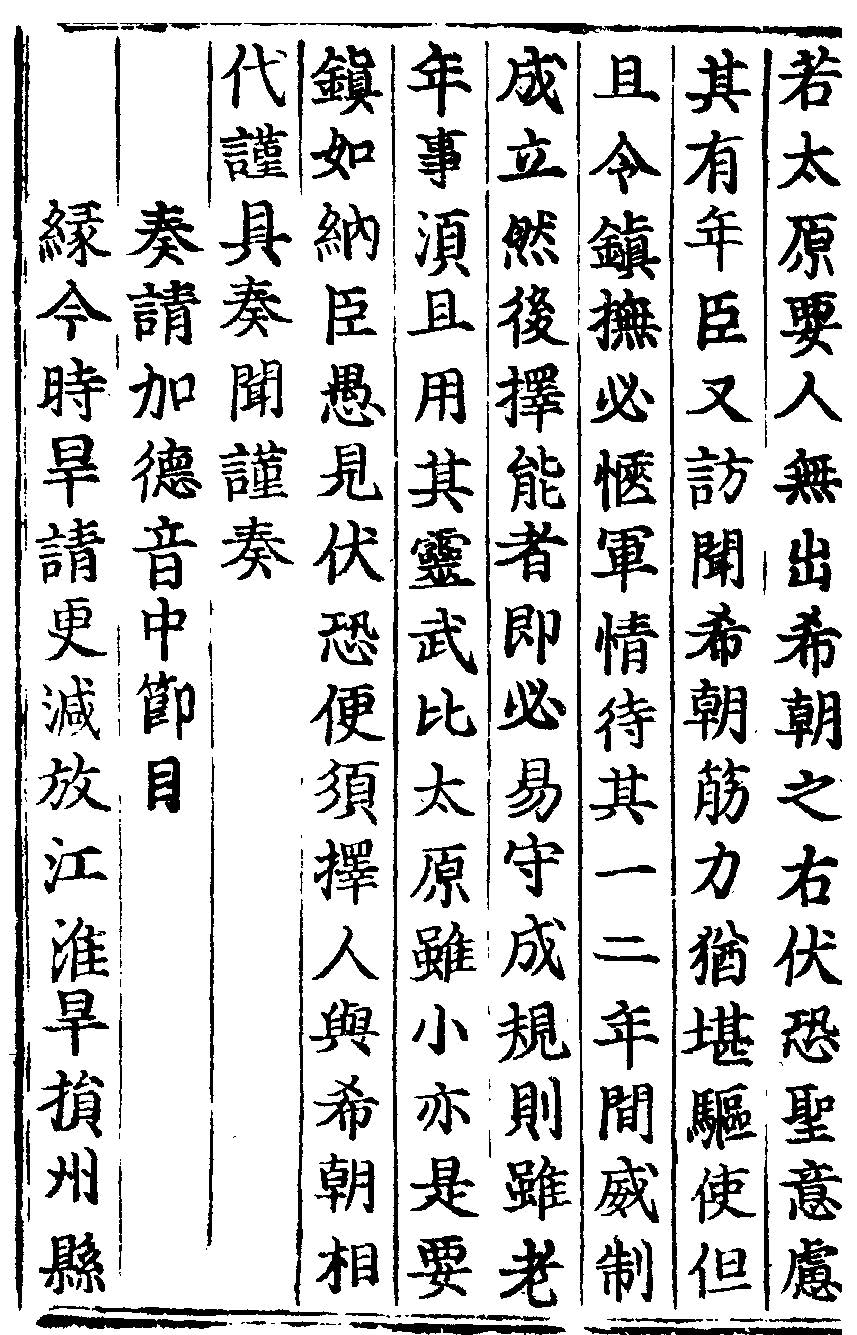 若太原要人無出希朝之右伏恐聖意慮
其有年臣又訪聞希朝筋力猶堪驅使但
且令鎮撫必愜軍情待其一二年間威制
成立然後擇能者即必易守成規則雖老
年事須且用其靈武比太原雖小亦是要
鎮如納臣愚見伏恐便須擇人與希朝相
代謹具奏聞謹奏
奏請加德音中節目
緣今時旱請更減放江淮旱損州縣